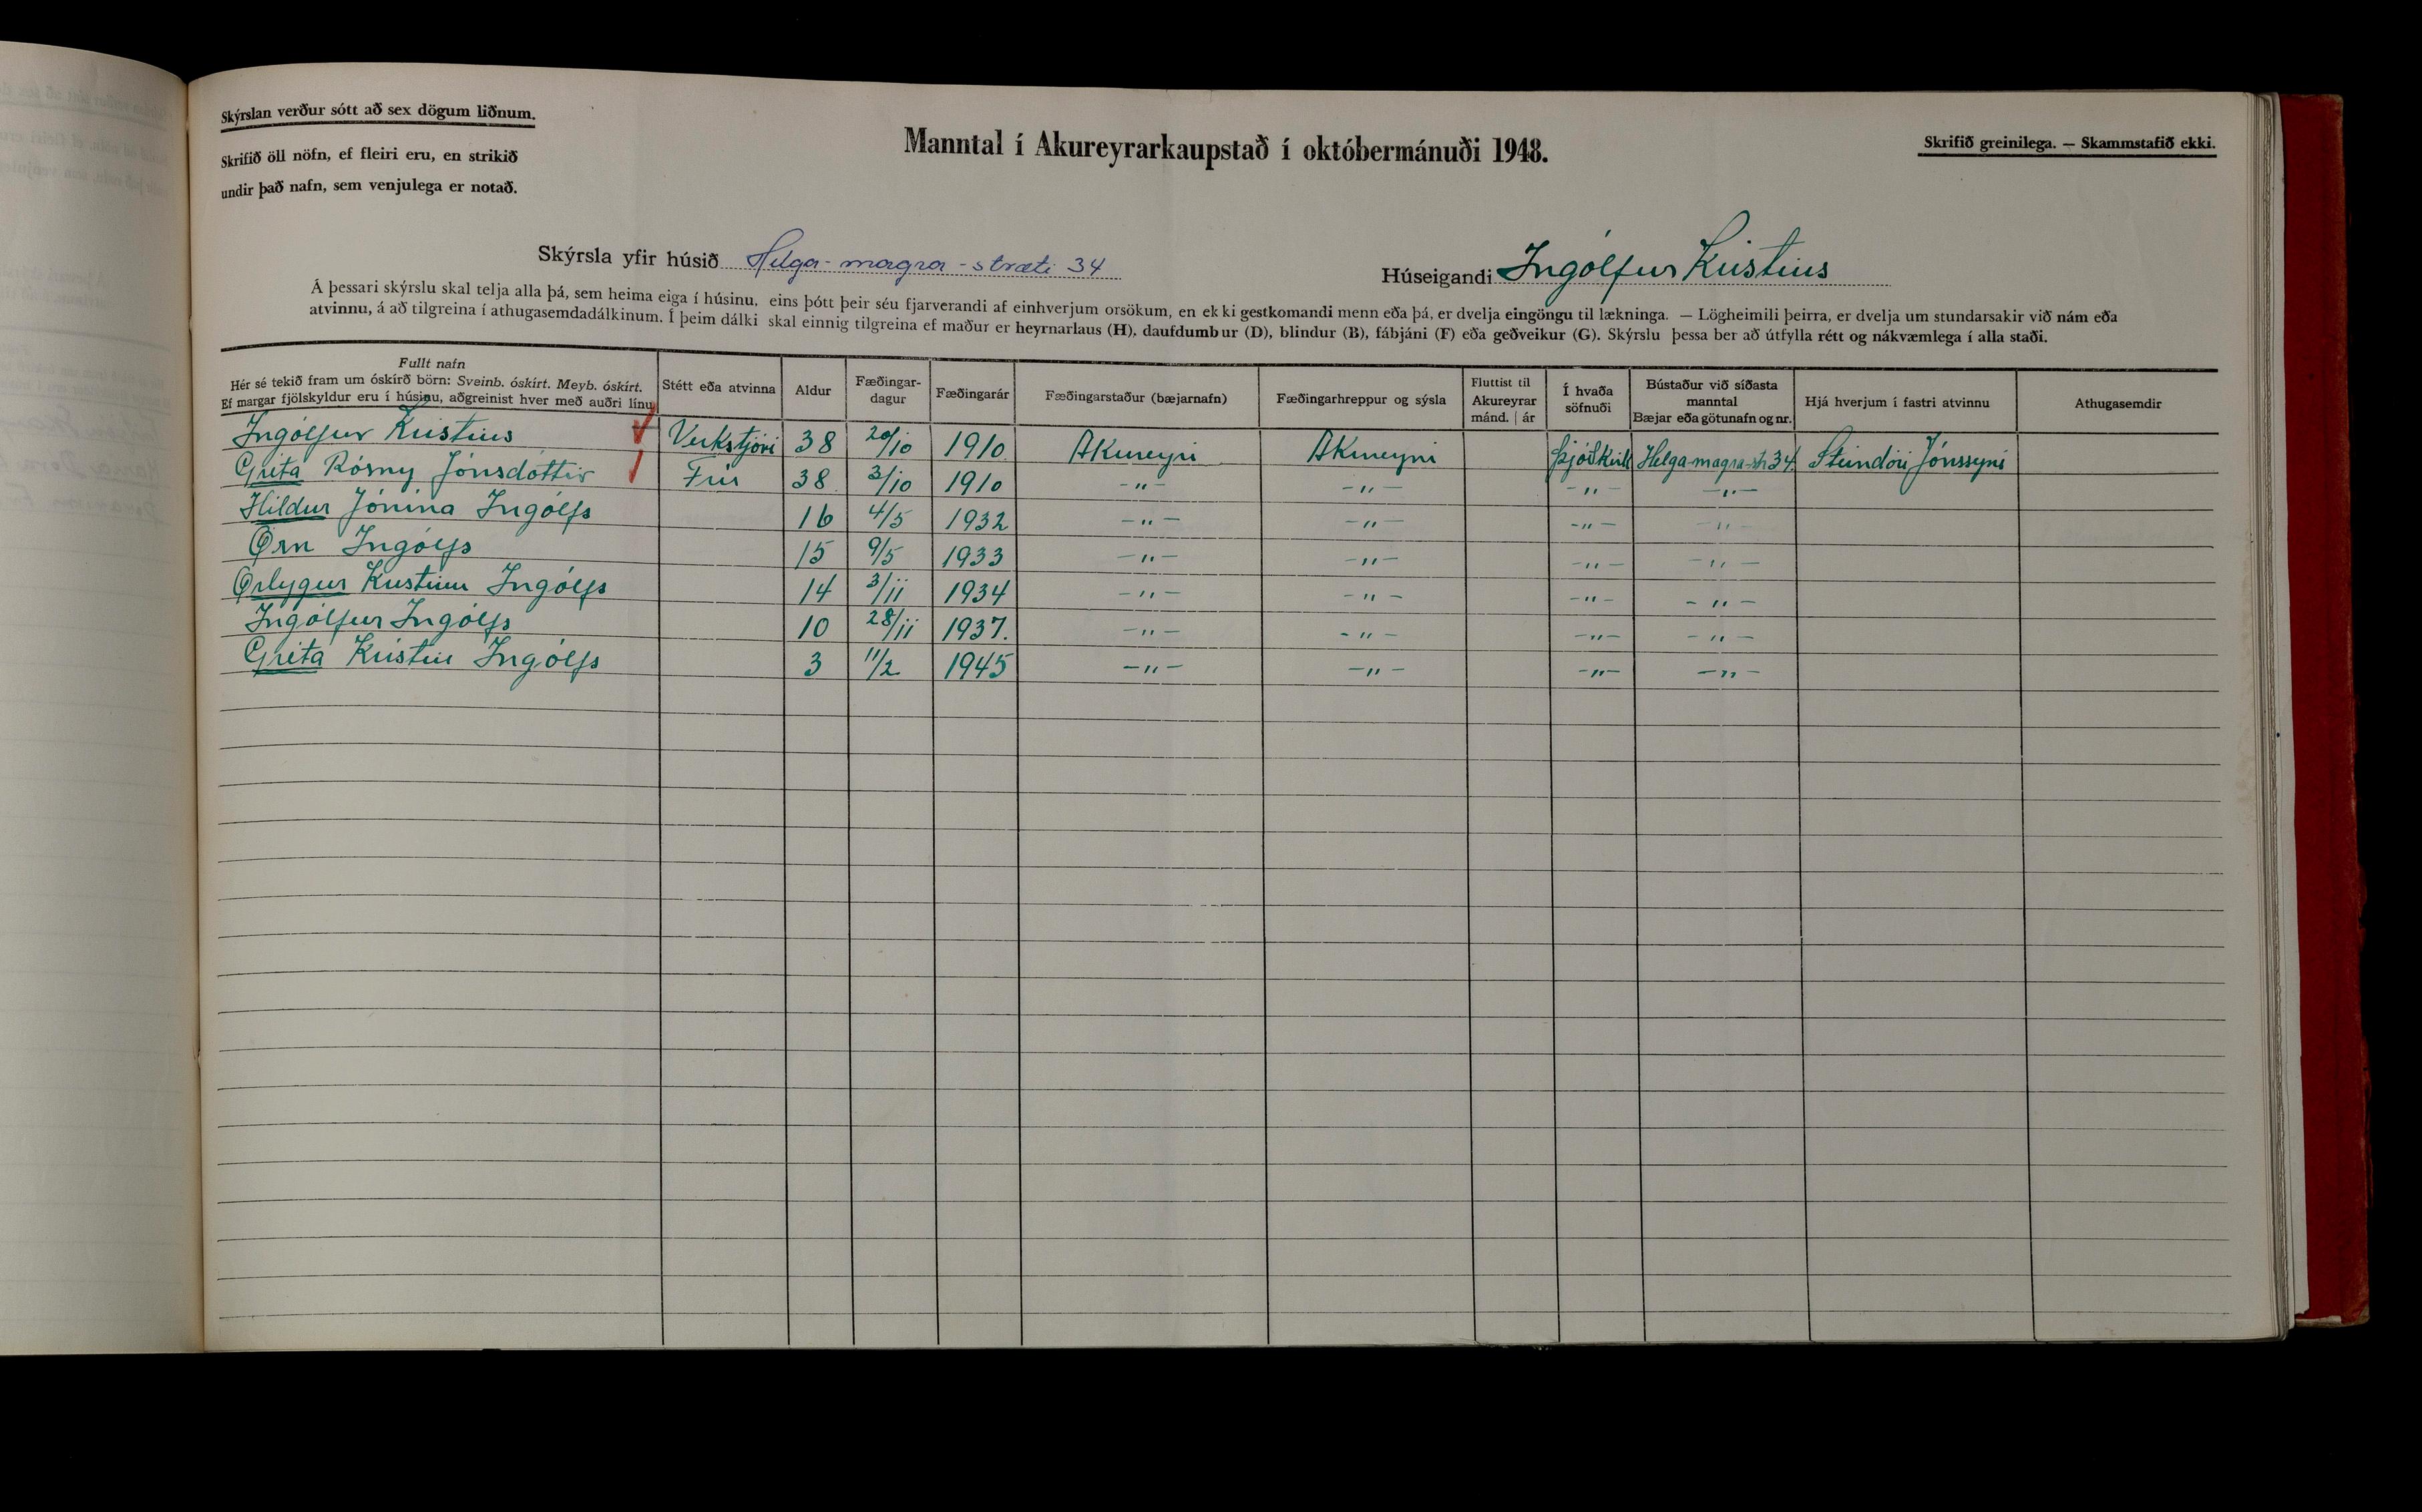 Skýrslan verður sótt að sex dögum liðnum.
Skrifið öll nöfn, ef fleiri eru, en strikið
undir það nafn, sem venjulega er notað.
Manntal í Akureyrarkaupstað í októbermánuði 1948.
Skrifið greinilega. — Skammstafið ekki.
Skýrsla yfir húsið Helga-magra-stræti 34
Húseigandi Ingólfur Kristins
Á þessari skýrslu skal telja alla þá, sem heima eiga í húsinu, eins þótt þeir séu fjarverandi af einhverjum orsökum, en ekki gestkomandi menn eða þá, er dvelja eingöngu til lækninga. — Lögheimili þeirra, er dvelja um stundarsakir við nám eða
atvinnu, á að tilgreina í athugasemdadálkinum. Í þeim dálki skal einnig tilgreina ef maður er heyrnarlaus (H), daufdumbur (D), blindur (B), fábjáni (F) eða geðveikur (G). Skýrslu þessa ber að útfylla rétt og nákvæmlega í alla staði.
Fullt nafn
Hér sé tekið fram um óskírð börn: Sveinb. óskírt. Meyb. óskírt.
Ef margar fjölskyldur eru í húsinu, aðgreinist hver með auðri línu
Stétt eða atvinna
Aldur
Fæðingar-
dagur
Fæðingarár
Fæðingarstaður (bæjarnafn)
Fæðingarhreppur og sýsla
Fluttist til
Akureyrar
mánd. | ár
Í hvaða
söfnuði
Bústaður við síðasta
manntal
Bæjar eða götunafn og nr.
Hjá hverjum í fastri atvinnu
Athugasemdir
Ingólfur Kristins Verkstjóri 38 20/10 1910 Akureyri Akureyri Þjóðkirk Helga-magra-str 34 Steindóri Jónssyni
Gréta Rósny Jónsdóttir Frú 38 3/10 1910 -"- -"- -"- -"-
Hildur Jónína Ingólfs 16 4/5 1932 -"- -"- -"- -"-
Örn Ingólfs 15 9/5 1933 -"- -"- -"- -"-
Örlygur Kristinn Ingólfs 14 3/11 1934 -"- -"- -"- -"-
Ingólfur Ingólfs 10 28/11 1937. -"- -"- -"- -"-
Gréta Kristín Ingólfs 3 11/2 1945 -"- -"- -"- -"-